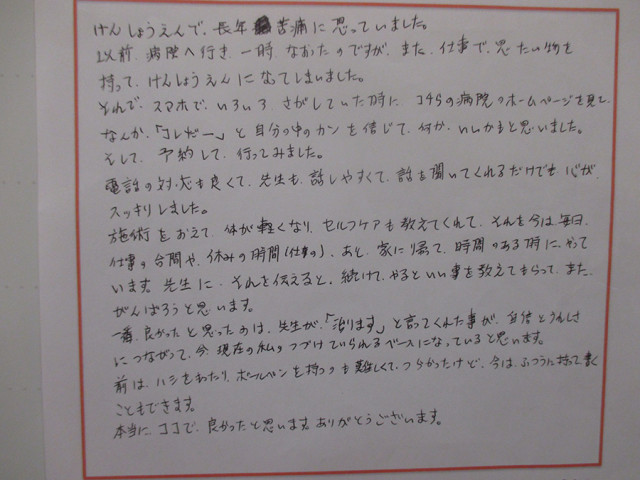 けんしょうえんで、長年苦痛に思っていました。
以前、病院へ行き、一時、なおったのですが、また、仕事で、思たい物を
持って、けんしょうえんになってしまいました。
それで、スマホで、いろいろ、さがしていた時に、コチラの病院のホームページを見て、
なんか、「コレだー」と自分の中のカンを信じて、何か、いいかると思いました。
そして、予約して、行ってみました。
電話の対応も良くて、先生も、話しやすくて、話を聞いてくれるだけでも、心が、
スッキリしました。
施術をおえて、体が軽くなり、セルフケアも教えてくれて、それを今は、毎日、
仕事の合間や、休みの時間(仕事の)、あと、家に帰って、時間のある時に、やって
います。先生に、それを伝えると、続けて、やるといい事を教えてもらって、また、
がんばろうと思います。
一番、良かったと思ったのは、先生が、「治ります」と言ってくれた事が、自信とうれしさ
につながって、今、現在の私のつづけていられるベースになっていると思います。
前は、ハシをわたり、ボールペンを持つのも難しくて、つらかったけど、今は、ふつうに持って書く
こともできます。
本当に、ココで、良かったと思います。ありがとうございます。